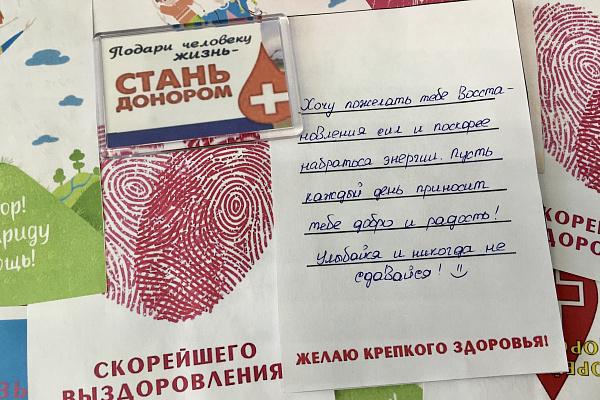 Подари человеку
жизнь-
СТАНЬ
ДОНОРОМ
Хочу пожелать тебе восста-
новления сил и поскорее
набраться энергии. Пусть
каждый день приносит
тебе добро и радость!
Улыбайся и никогда не
сдавайся!
ЖЕЛАЮ КРЕПКОГО ЗДОРОВЬЯ!
СКОРЕЙШЕГО
ВЫЗДОРОВЛЕНИЯ
ор!
риду
ощь!
СКОРЕЙ
ЗДОРОВ